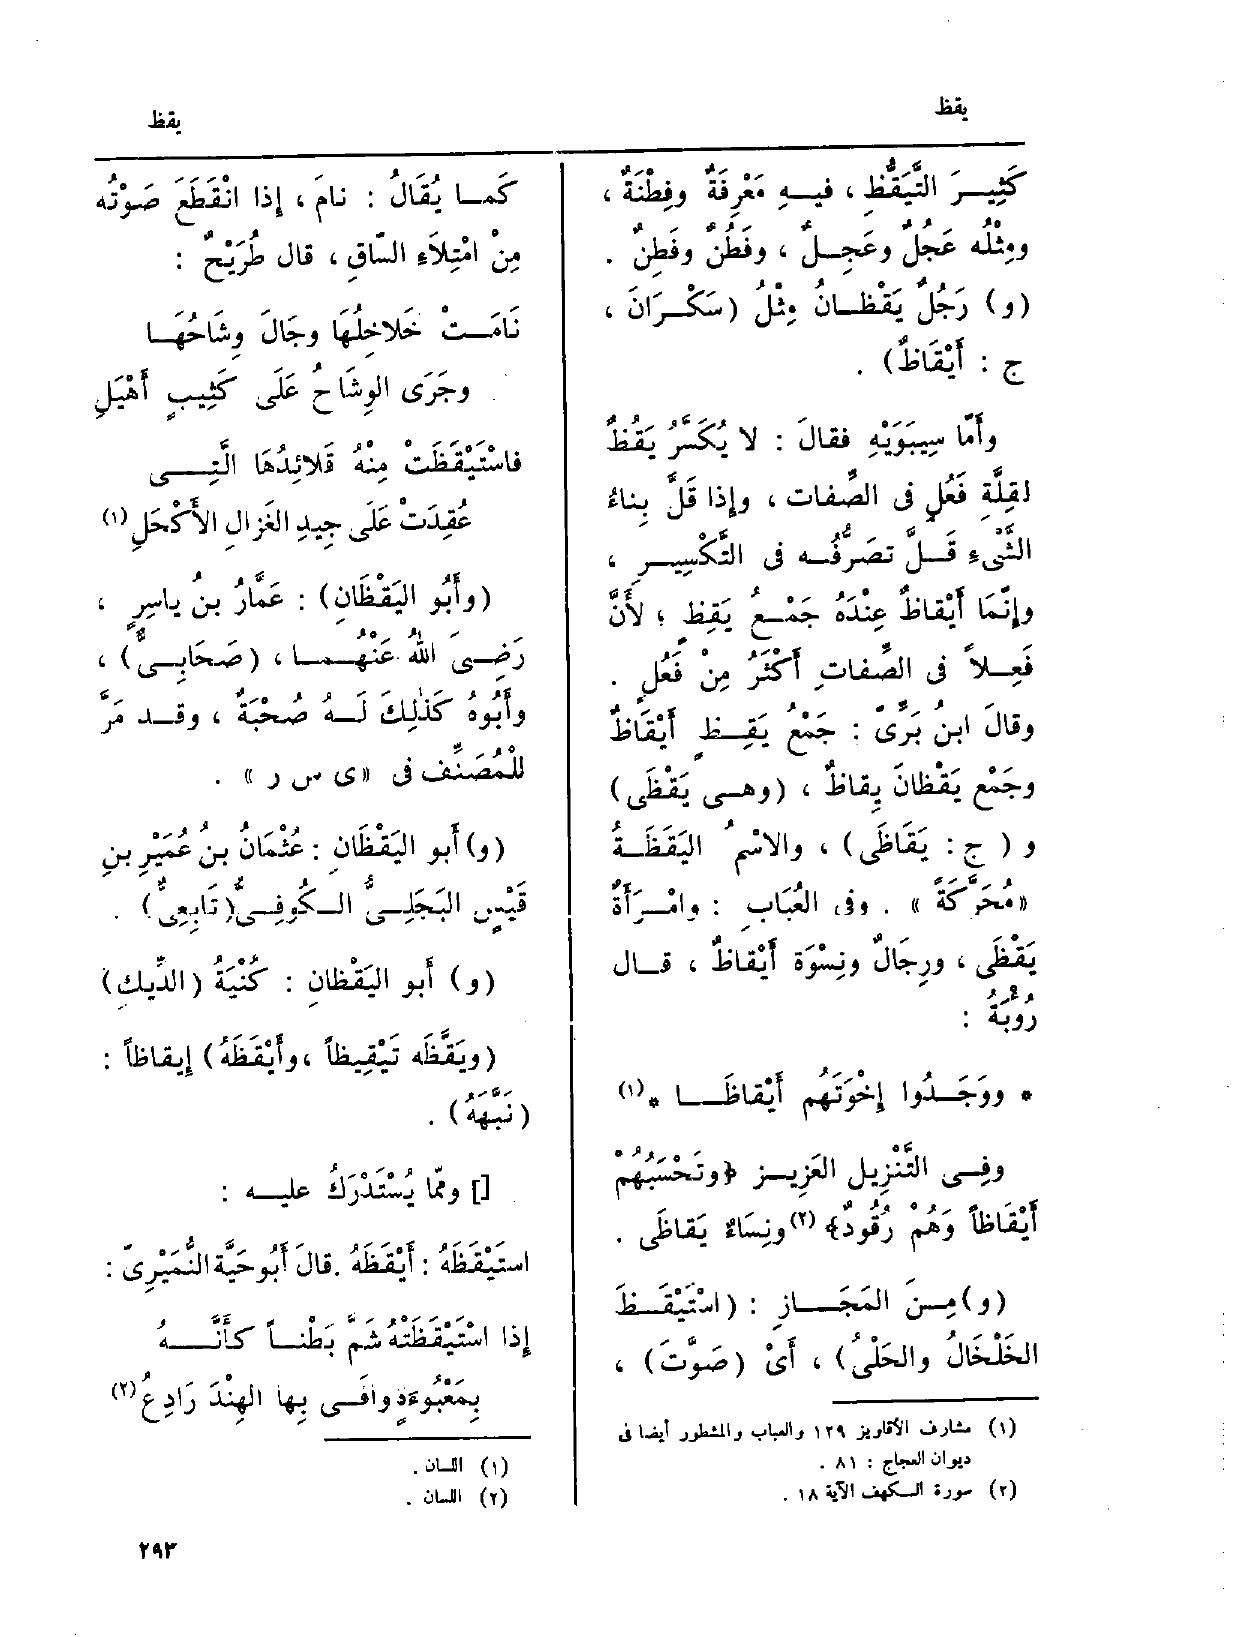 يقظ
يقظ
كَثِيـرَ التَّيَقُّظِ ، فيـهِ مَعْرِفَةٌ وفِطْنَةٌ ،
ومِثْلُه عَجُلٌ وعَجِـلٌ ، وفَطُنٌ وفَطِنٌ .
(و) رَجُلٌ يَقْظـانُ مِثْلُ (سَكْـرَانَ ،
ج : أَيْقَاظٌ) .
وأَمّا سِيبَوَيْهِ فقالَ : لا يُكَسَّرُ يَقُظٌ
لقِلَّةِ فَعُلٍ فى الصِّفات ، وإذا قَلَّ بِناءُ
الشَّىْءِ قَـلَّ تصَرُّفُـه فى التَّكْسِيـرِ ،
وإنَّمَا أَيْقاظٌ عِنْدَهُ جَمْـعُ يَقِظٍ ، لأَنَّ
فَعِـلاً فى الصِّفاتِ أَكْثَرُ مِنْ فَعُلٍ .
وقالَ ابنُ بَرِّىّ : جَمْعُ يَقِـظٍ أَيْقَاظٌ
وجَمْع يَقْظانَ يِقاظٌ ، (وهـى يَقْظَى)
و ( ج : يَقَاظَى) ، والاسْمُ اليَقَظَـةُ
«مُحَرَّكَةً» . وفى العُبَابِ : وامْـرَأَةٌ
يَقْظَى ، ورِجَالٌ ونِسْوَة أَيْقَاظٌ ، قـال
رُؤْبَةُ :
* ووَجَـدُوا إِخْوَتَهُم أَيْقاظَـا *(١)
وفِـى التَّنْزِيل العَزِيـز ﴿وتَحْسَبُهُمْ
أَيْقَاظاً وَهُمْ رُقُودٌ﴾(٢) ونِسَاءٌ يَقاظَى .
(و) مِـنَ المَجَـازِ : (اسْتَيْقَـظَ
الخَلْخَالُ والحَلْىُ) ، أَىْ (صَوَّتَ) ،
(١) مشارف الأقاويز ١٢٩ والعباب والمشطور أيضا فى
ديوان العجاج : ٨١ .
(٢) سورة الـكهف الآية ١٨ .
كَمـا يُقَالُ : نامَ ، إذا انْقَطَعَ صَـوْتُه
مِنْ امْتِلاَءِ السّاقِ ، قال طُرَيْحٌ :
نَامَـتْ خَلاخِلُهَا وجَالَ وِشَاحُهَـا
وجَرَى الوِشَاحُ عَلَى كَثِيبٍ أَهْيَلِ
فاسْتَيْقَظَتْ مِنْهُ قَلائِدُهَا الَّتِــى
عُقِدَتْ عَلَى جِيدِ الغَزالِ الأَكْحَلِ (١)
(وأَبُو اليَقْظَانِ) : عَمَّارُ بن يَاسِرٍ ،
رَضِـىَ اللهُ عَنْهُـمـا ، (صَحَابِـىٌّ) ،
وأَبُوهُ كَذٰلِكَ لَـهُ صُحْبَةٌ ، وقـد مَرَّ
للْمُصَنِّف فى «ى س ر» .
(و) أَبو اليَقْظَانِ : عُثْمَانُ بنُ عُمَيْرِ بنِ
قَيْسٍ البَجَلِـىُّ الـكُوفِـىُّ (تَابِعِىٌّ) .
(و) أَبو اليَقْظانِ : كُنْيَةُ (الدِّيكِ)
(ويَقَّظَه تَيْقِيظاً ، وأَيْقَظَهُ) إيقاظاً :
(نَبَّهَهُ) .
[] وممّا يُسْتَدْرَكُ عليـه :
استَيْقَظَهُ : أَيْقَظَهُ . قالَ أَبُو حَيَّةَ النُّمَيْرِىّ :
إذا اسْتَيْقَظَتْهُ شَمَّ بَطْنـاً كأَنَّـهُ
بِمَعْبُوءَةٍ وافَـى بِها الهِنْدَ رَادِعُ(٢)
(١) اللسان .
(٢) اللسان .
٢٩٣